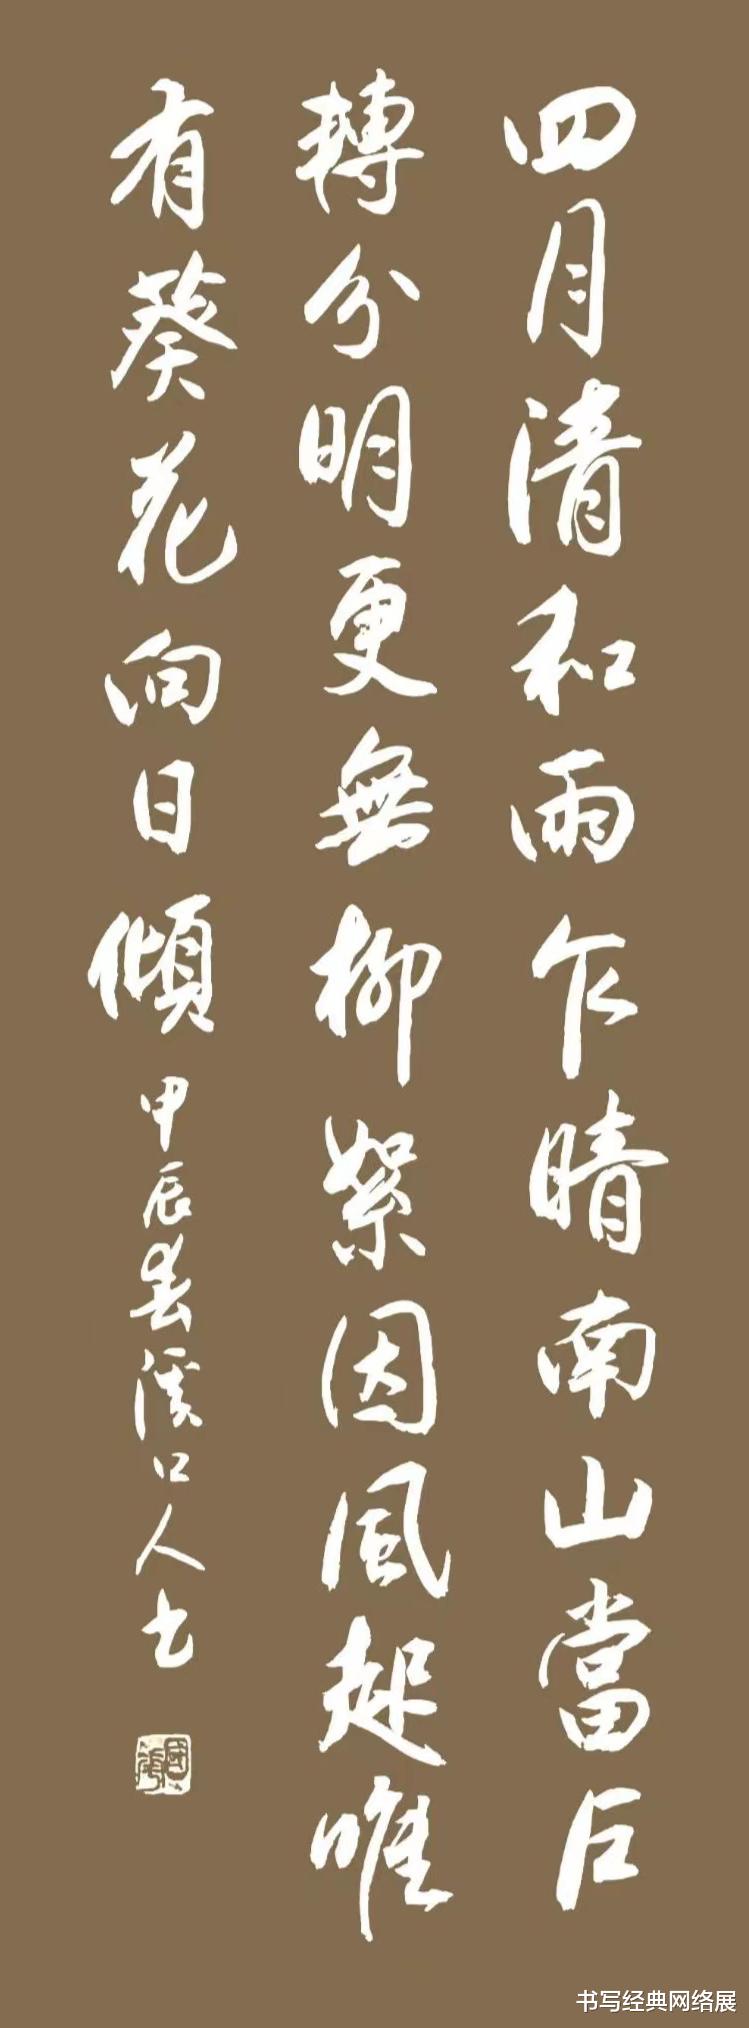 四月清和雨乍晴南山當戶
轉分明更無柳絮因風起唯
有葵花向日傾
甲辰春溪口人书
书写经典网络展